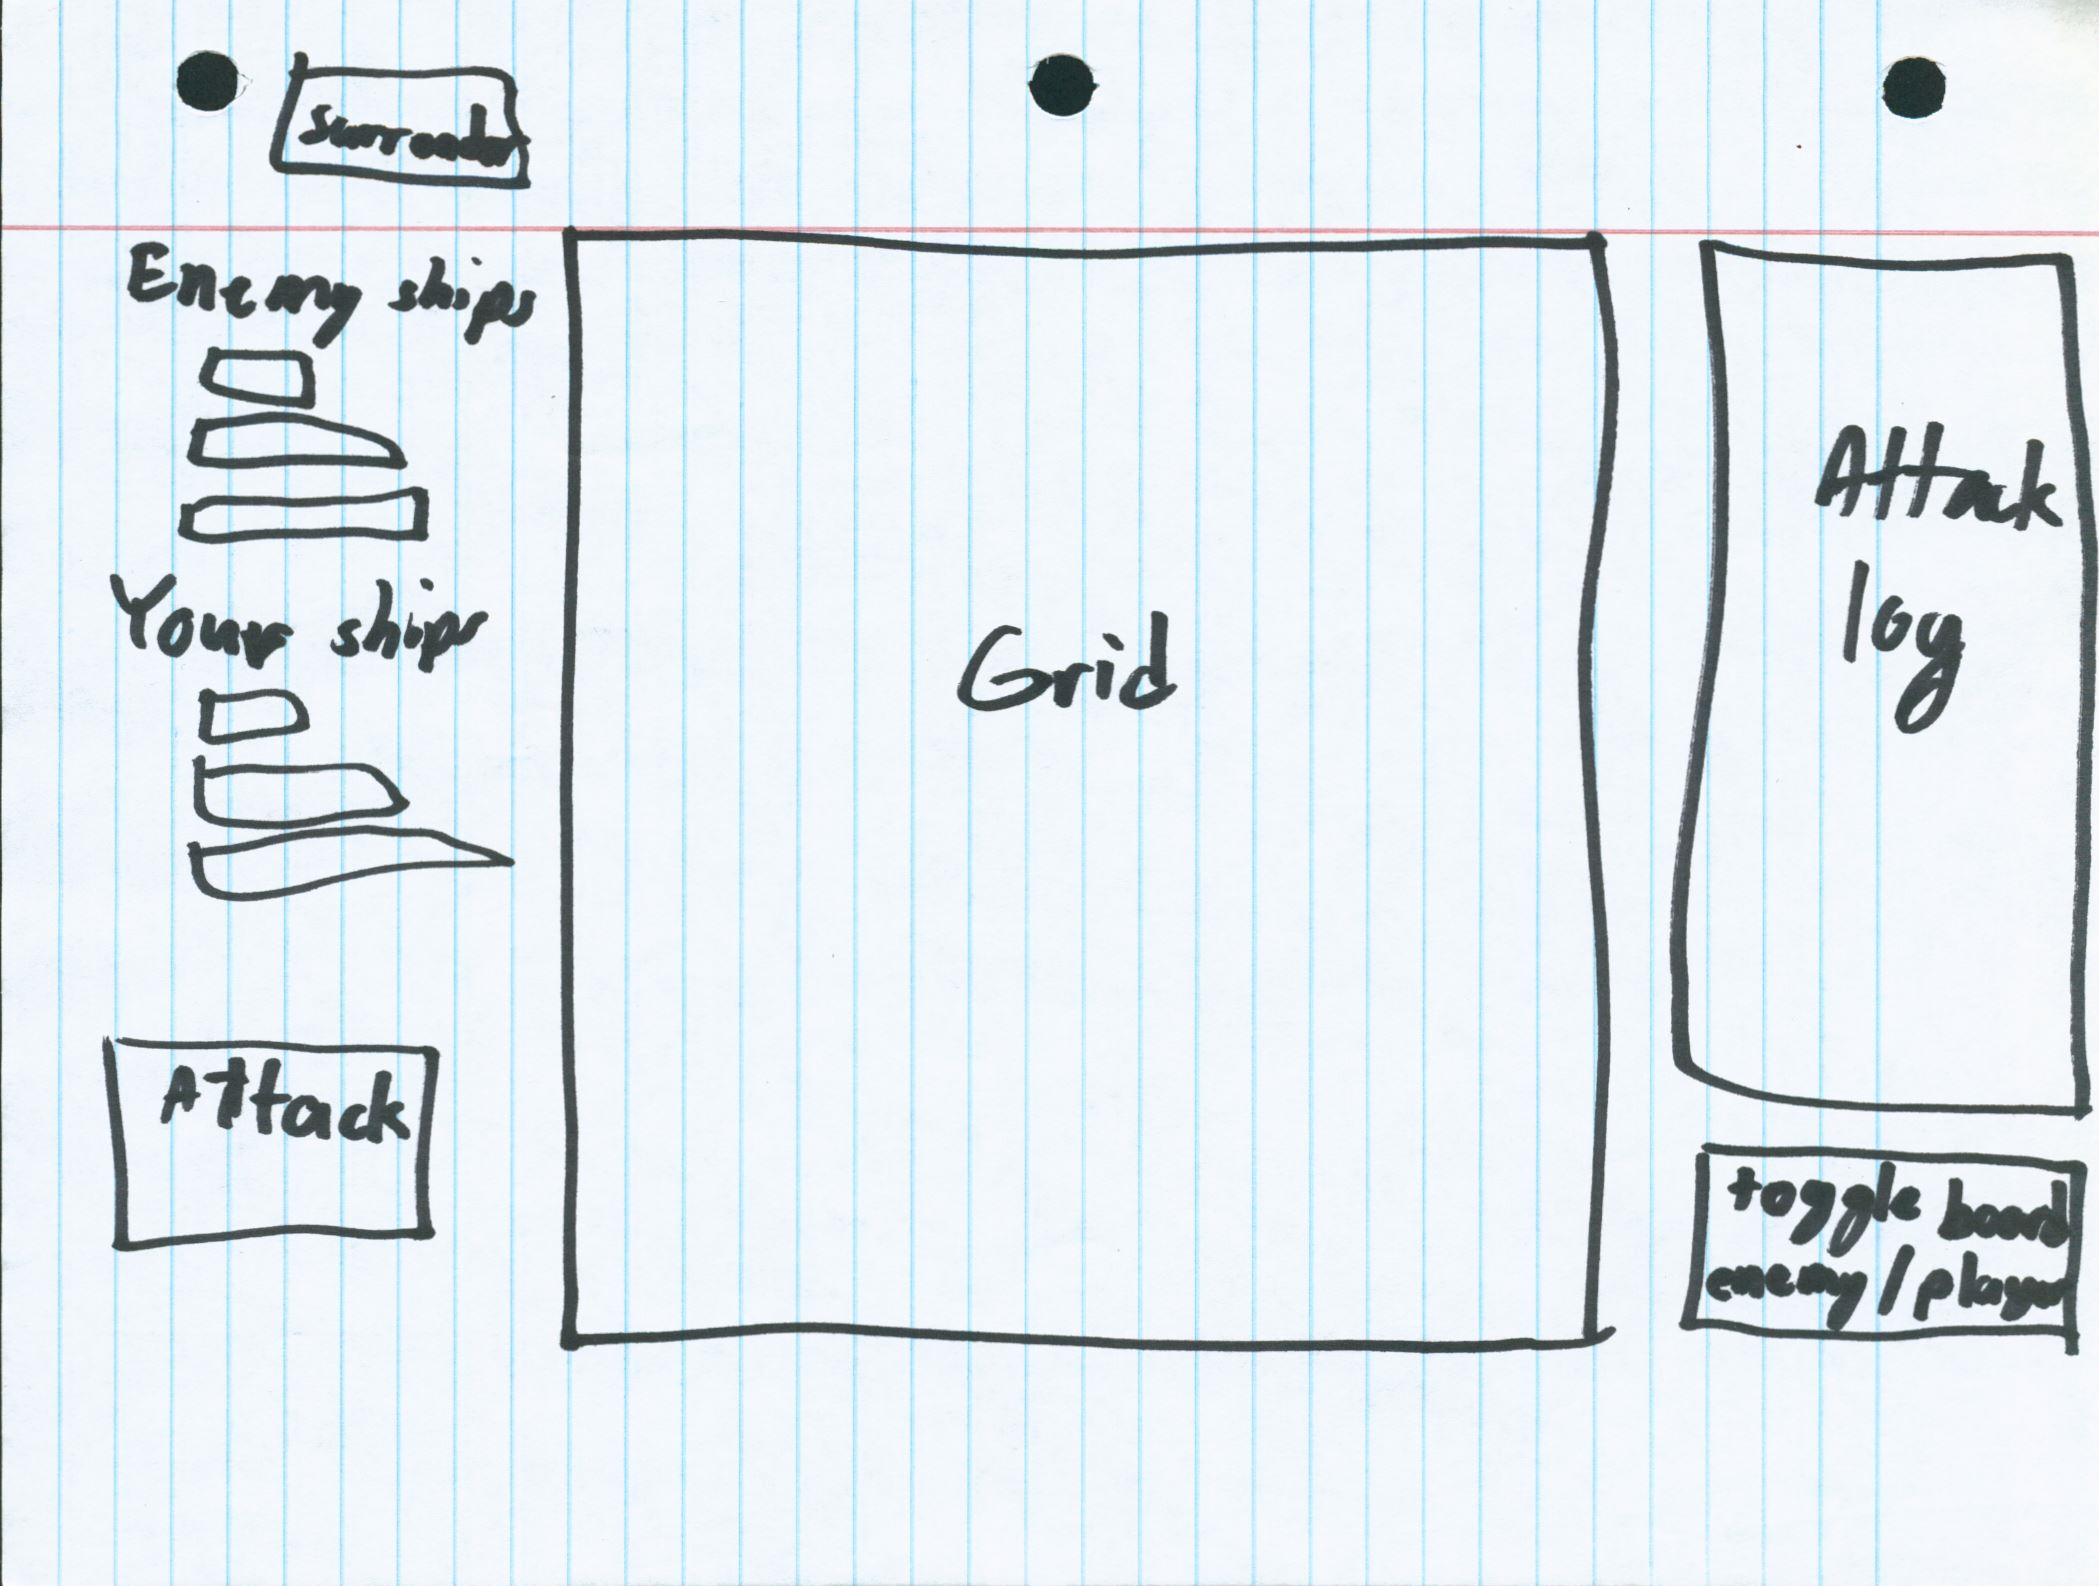 Surrender
Enemy ships
Your ships
Attack
Grid
Attack
log
toggle board
enemy/player